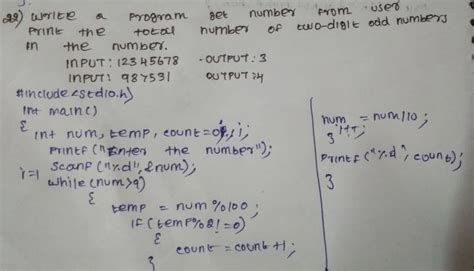 22) Write a program get number from user
print the total number of two-digit odd numbers
in the number.
INPUT: 12345678 OUTPUT: 3
INPUT: 987531 OUTPUT: 4
#include<stdio.h>
int main()
{ int num, temp, count=0, i;
printf("Enter the number");
scanf("%d", &num);
i=1 while(num>9)
{
temp = num%100;
if (temp%2!=0)
{
count = count+1;
}
num = num/10;
i++;
}
printf("%d", count);
}